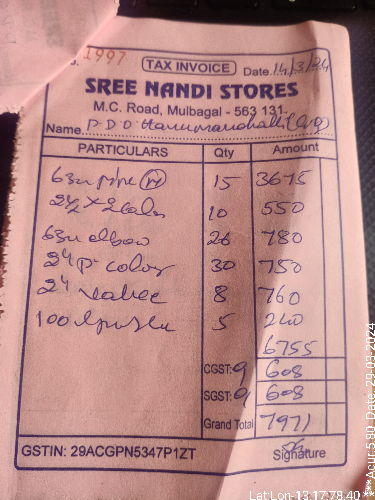 1997
TAX INVOICE Date 14/3/24
SREE NANDI STORES
M.C. Road, Mulbagal - 563 131.
Name P.D.O.
PARTICULARS Qty Amount
63m pipe 15 3675
10 550
63m elbow 26 780
30 750
8 760
5 240
6755
CGST: 9 608
SGST: 9 608
Grand Total 7971
GSTIN: 29ACGPN5347P1ZT Signature
Lat Lon-13.17:78.40
***Acur:5.80 Date: 29-03-2024